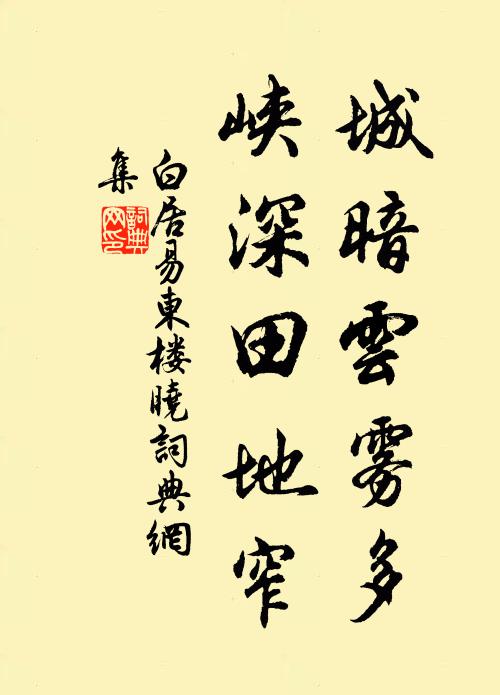 城暗雲雾多
峡深田地窄
白居易東楼曉詞典網
集
詞典
网印